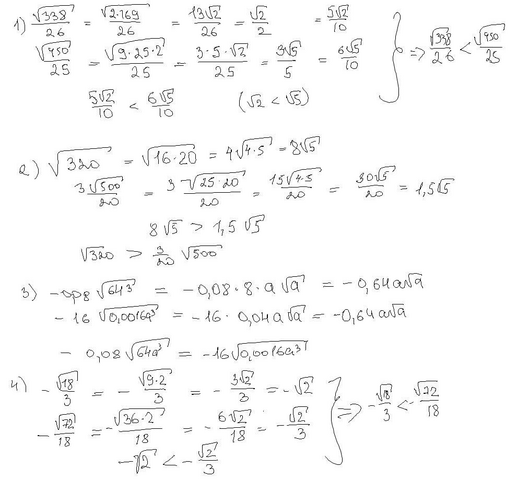 1) √338/26 = √(2·169)/26 = 13√2/26 = √2/2 = 5√2/10
√450/25 = √(9·25·2)/25 = 3·5·√2/25 = 3√5/5 = 6√5/10 } => √338/26 < √450/25
5√2/10 < 6√5/10 (√2 < √5)
2) √320 = √(16·20) = 4√(4·5) = 8√5
3√500/20 = 3√(25·20)/20 = 15√(4·5)/20 = 30√5/20 = 1,5√5
8√5 > 1,5√5
√320 > 3/20 √500
3) -0,08√(64a³) = -0,08·8·a√a = -0,64a√a
-16√(0,0016a³) = -16·0,04a√a = -0,64a√a
-0,08√(64a³) = -16√(0,0016a³)
4) -√18/3 = -√(9·2)/3 = -3√2/3 = -√2
-√72/18 = -√(36·2)/18 = -6√2/18 = -√2/3 } => -√18/3 < -√72/18
-√2 < -√2/3